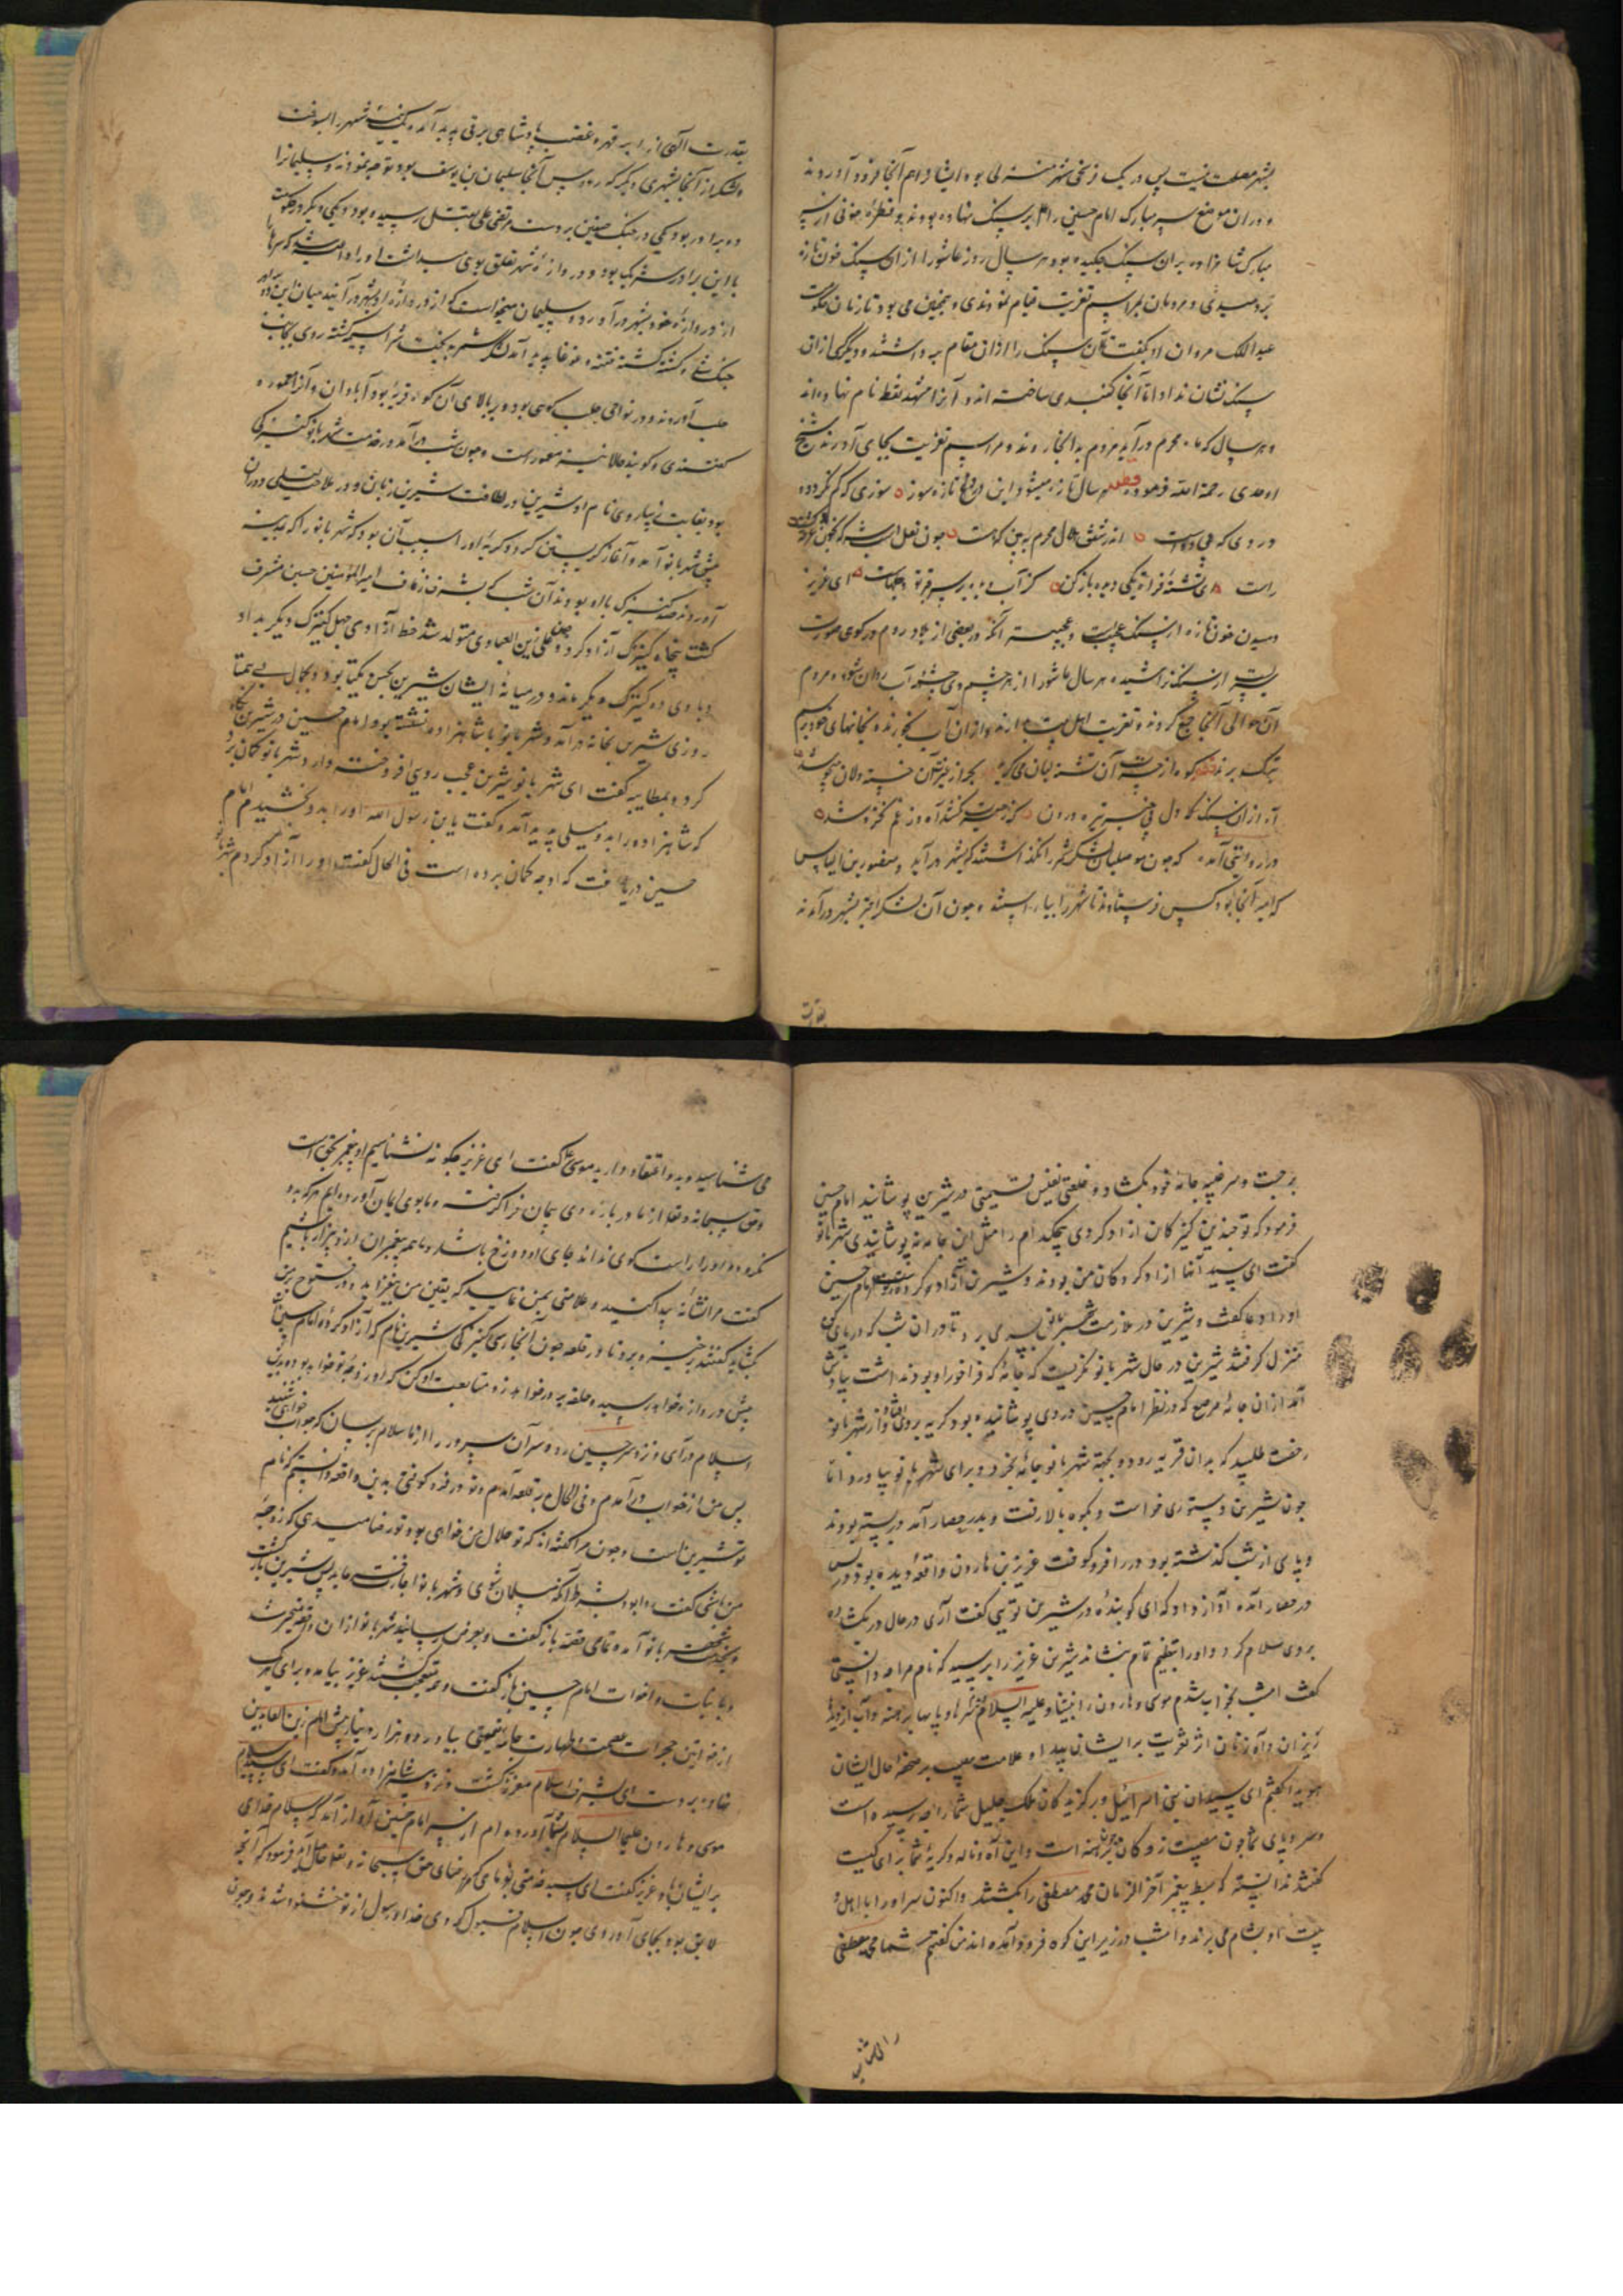 بشهر مصلحت نیست پس در یک فرسخی شهر منزلی بود ایشانرا هم آنجا فرود آوردند
و در ان موضع سر مبارک امام حسین را بر سنک نهاده بودند و قطره خونی از سر
مبارک شاهزاده بران سنک چکیده بود هر سال روز عاشورا از ان سنک خون تازه
بردمیدی و مردمان بمراسم تعزیت قیام نمودندی و همچنین می بود تا زمان حکومت
عبدالملک مروان او بگفت تا آن سنک را ازان مقام برداشتند و دیگر کسی ازان
سنک نشان نداد اما آنجا کنبدی ساخته اند و آنرا مشهد نقطه نام نهاده اند
و هر سال که ماه محرم در آید مردم بدانجا روند و مراسم تعزیت بجای آورند شیخ
اوحدی رحمة الله فرموده هر سال تازه میشود این درد تازه سوز سوزی که کم نکردد و
دردی که بی دواست اندر شفق هلال محرم به بین که هست چون نعل
راست ای تشنه فرات یکی دیده باز کن کز آب دیده بر سر قبر تو ای عزیز
دمیدن خون تازه از سنک عجیب است و عجیبتر آنکه در بعضی از بلاد روم در کوهی صورت
شیریست از سنک تراشیده هر سال عاشورا از هر دو چشم وی چشمه آب روان شود و مردم
آن حوالی آنجا جمع کردند و تعزیت اهل بیت بدارند و ازان آب بخورند و بخانهای خود برسم
تبرک برند کوه از حسرت آن تشنه لبان می کرید بحر از آتش آن خسته دلان میجوشد
آه ازان سنک دل تیره درون که زحسرت نکشد آه و ز غم نخروشد
در روایتی آمده که چون موصلیان لشکر شمر را نکذاشتند که بشهر در آید و منصور بن الیاس
که امیر آنجا بود کس فرستادند تا شهر را بیاراستند و چون آن لشکر ابتر بشهر در آمدند
بقدرت
بقدرت الهی از ابر قهر و غضب پادشاهی برقی پدید آمد و یک نیمه شهر را بسوخت
و لشکر از آنجا بشهری دیگر که رود پس آنجا سلیمان بن یوسف بود توجه نمودند و سلیمانرا
دو برادر بود یکی در جنک صفین بر دست مرتضی علی بقتل رسیده بود و یکی دیگر در حکومت
با این برادر شریک بود و دروازه شهر تعلق بوی میداشت اورا داعیه شد که سرها را
از دروازه خود بشهر در آورد و سلیمان میخواست که از دروازه او بشهر در آیند میان این دو برادر
جنک شد و کشته کشت و فتنه و غوغا پدید آمد لشکر شمر به سراسیمه کشته روی بجانب
حلب آوردند و در نواحی حلب کوهی بود و بر بالای آن کوه قریه بود آبادان و آنرا معموره
کفتندی و کویند حالا نیز معمور است و چون شب در آمد در خدمت شهر بانو کنیزکی
بود بغایت زیبا روی نام او شیرین و در لطافت شیرین زبان و در ملاحت لیلی دوران
پیش شهر بانو آمد و آغاز کریستن کرد و کریه اورا سبب آن بود که شهر بانو را که بمدینه
آوردند صد کنیزک با او بودند آن شب که بشرف زفاف امیر المؤمنین حسین مشرف
کشت پنجاه کنیزک آزاد کرد و علی زین العابدین متولد شد خط آزادی چهل کنیزک دیگر بداد
و با وی ده کنیزک دیگر ماند و در میانه ایشان شیرین بحسن یکتا بود و بجمال بی همتا
روزی شیرین بخانه در آمد و شهر بانو با شاهزاده نشسته بود امام حسین در شیرین نکاه
کرد و بمطایبه گفت ای شهر بانو شیرین عجب روی افروخته دارد شهر بانو کمان برد
که شاهزاده را بدو میلی پدید آمد و گفت یا بن رسول الله اورا بدو بخشیدم امام
حسین دریافت که او چه کمان برده است فی الحال گفت اورا آزاد کردم شهر بانو
برجست و سر صندوق جامه خود بکشاد و خلعتی نفیس قیمتی در شیرین پوشانید امام حسین
فرمود که تو چندین کنیزکان آزاد کردی هیچکدام را مثل این جامه نپوشانیدی شهر بانو
گفت ای سید آنها آزاد کردکان من بودند و شیرین آزاد کرده تو امام حسین
اورا دعا گفت و شیرین در ملازمت شهر بانو بسر می برد تا دران شب که در پای کوه
منزل کرفتند شیرین در حال شهر بانو نکریست که جامه که فراخور او بود نداشت بیادش
آمد ازان جامه مرصع که در نظر امام حسین در وی پوشانیده بود کریه بروی افتاد و از شهر بانو
رخصت طلبید که بدان قریه رود و بجهة شهر بانو جامه بخرد و برای شهر بانو بیاورد اما
چون شیرین دستوری خواست و بکوه بالا رفت و بدر حصار آمد در بسته بودند
و پاسی از شب کذشته بود در را فرو کوفت عزیز بن هارون واقعه دیده بود در پس
در حصار آمد آواز داد که ای کوبنده در شیرین توئی گفت آری در حال در بکشاد
بروی سلام کرد و اورا بتعظیم تمام بنشاند شیرین عزیز را پرسید که نام مرا چه دانستی
گفت امشب بخواب شدم موسی و هارون را نبینا و علیه السلام سرها و پاها برهنه و آب از دیده
ریزان و آه زنان اثر تعزیت بر ایشان پیدا و علامت مصیبت بر صفحه حال ایشان
هویدا گفتم ای سیدان بنی اسرائیل و برکزیدکان ملک جلیل شما را چه رسیده است
و سر و پای شما چون مصیبت زدکان چرا برهنه است و این آه و ناله و کریه شما برای کیست
گفتند ندانسته که سبط پیغمبر آخر الزمان محمد مصطفی را بکشتند و اکنون سر اورا با اهل
بیت او بشام می برند و امشب در زیر این کوه فرود آمده اند من گفتم شما محمد مصطفی
را می شناسید
می شناسید و بدو اعتقاد دارید موسی گفت ای عزیز چگونه نشناسیم او پیغمبر بحق است
و حق سبحانه و تعالی از ما در باره وی پیمان فرا کرفت و ما بوی ایمان آورده ایم هر که بدو
نکرود و اورا راست کوی نداند جای او دوزخ باشد و ما همه پیغمبران ازو بیزار باشیم
گفتم مرا نشانه پیدا کنید و علامتی بمن نمایید که یقین من بیفزاید و در فتوح بر من
بکشاید گفتند برخیز و برو تا در قلعه چون آنجا رسی کنیزکی شیرین نام که آزاد کرده امام حسین است
پیش دروازه خواهد رسید و حلقه بر در خواهد زد متابعت او کن که او زوجه تو خواهد بود و بدین
اسلام در آی و نزد سر حسین رو و بر آن سرور را از ما سلام برسان که جواب خواهی شنید
پس من از خواب در آمدم و فی الحال بدر قلعه آمدم و تو در فرو کوفتی بدین واقعه دانستم که نام
تو شیرین است و چون مرا گفته اند که تو حلال من خواهی بود تو رضا میدهی که زوجه
من باشی گفت روا بود بشرط آنکه مسلمان شوی و شهر بانو اجازت فرماید پس شیرین باز کشت
و بخدمت شهر بانو آمد و تمامی قصه باز گفت و بعرض رسانید شهر بانو ازان واقعه متحیر شد
و با بنات و اخوات امام حسین باز گفت و همه متعجب شدند عزیز بیامد و برای هر یک
از خواتین حجرات عصمت و طهارت جامه قیمتی بیاورد و دو هزار دینار پیش امام زین العابدین
نهاد و بر دست وی بشرف اسلام معزز کشت و نزد سر شاهزاده آمد و گفت ای سید
موسی و هارون علیهما السلام سلام بشما آورده ام از سر امام حسین آواز آمد که سلام خدای
بر ایشان باد عزیز گفت ای سید خدمتی بفرمای که رضای حق سبحانه و تعالی حاصل آید فرمود که آنچه
لایق بود بجای آوردی چون اسلام قبول کردی خدا و رسول از تو خشنود شدند و چون